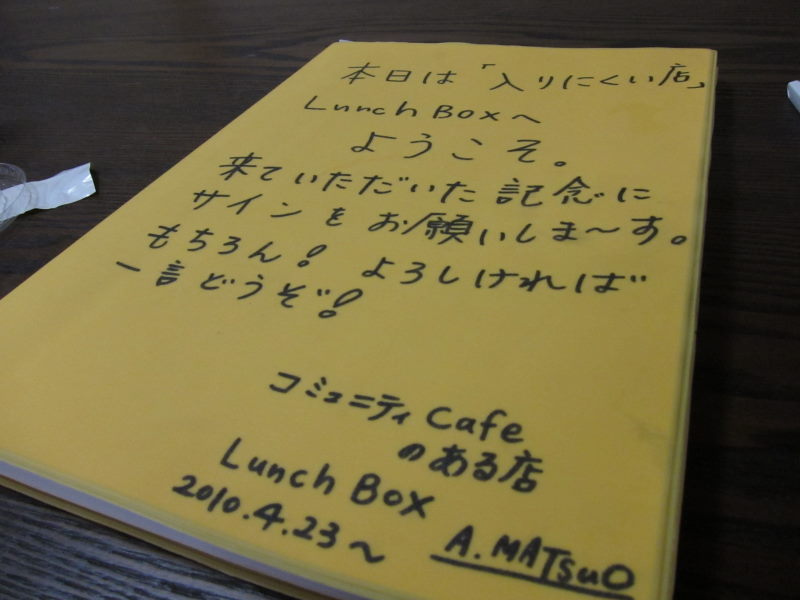 本日は「入りにくい店」
Lunch Boxへ
ようこそ。
来ていただいた記念に
サインをお願いしま〜す。
もちろん! よろしければ
一言どうぞ!
コミュニティ Cafe
のある店
Lunch Box
2010.4.23〜
A.MATSUO